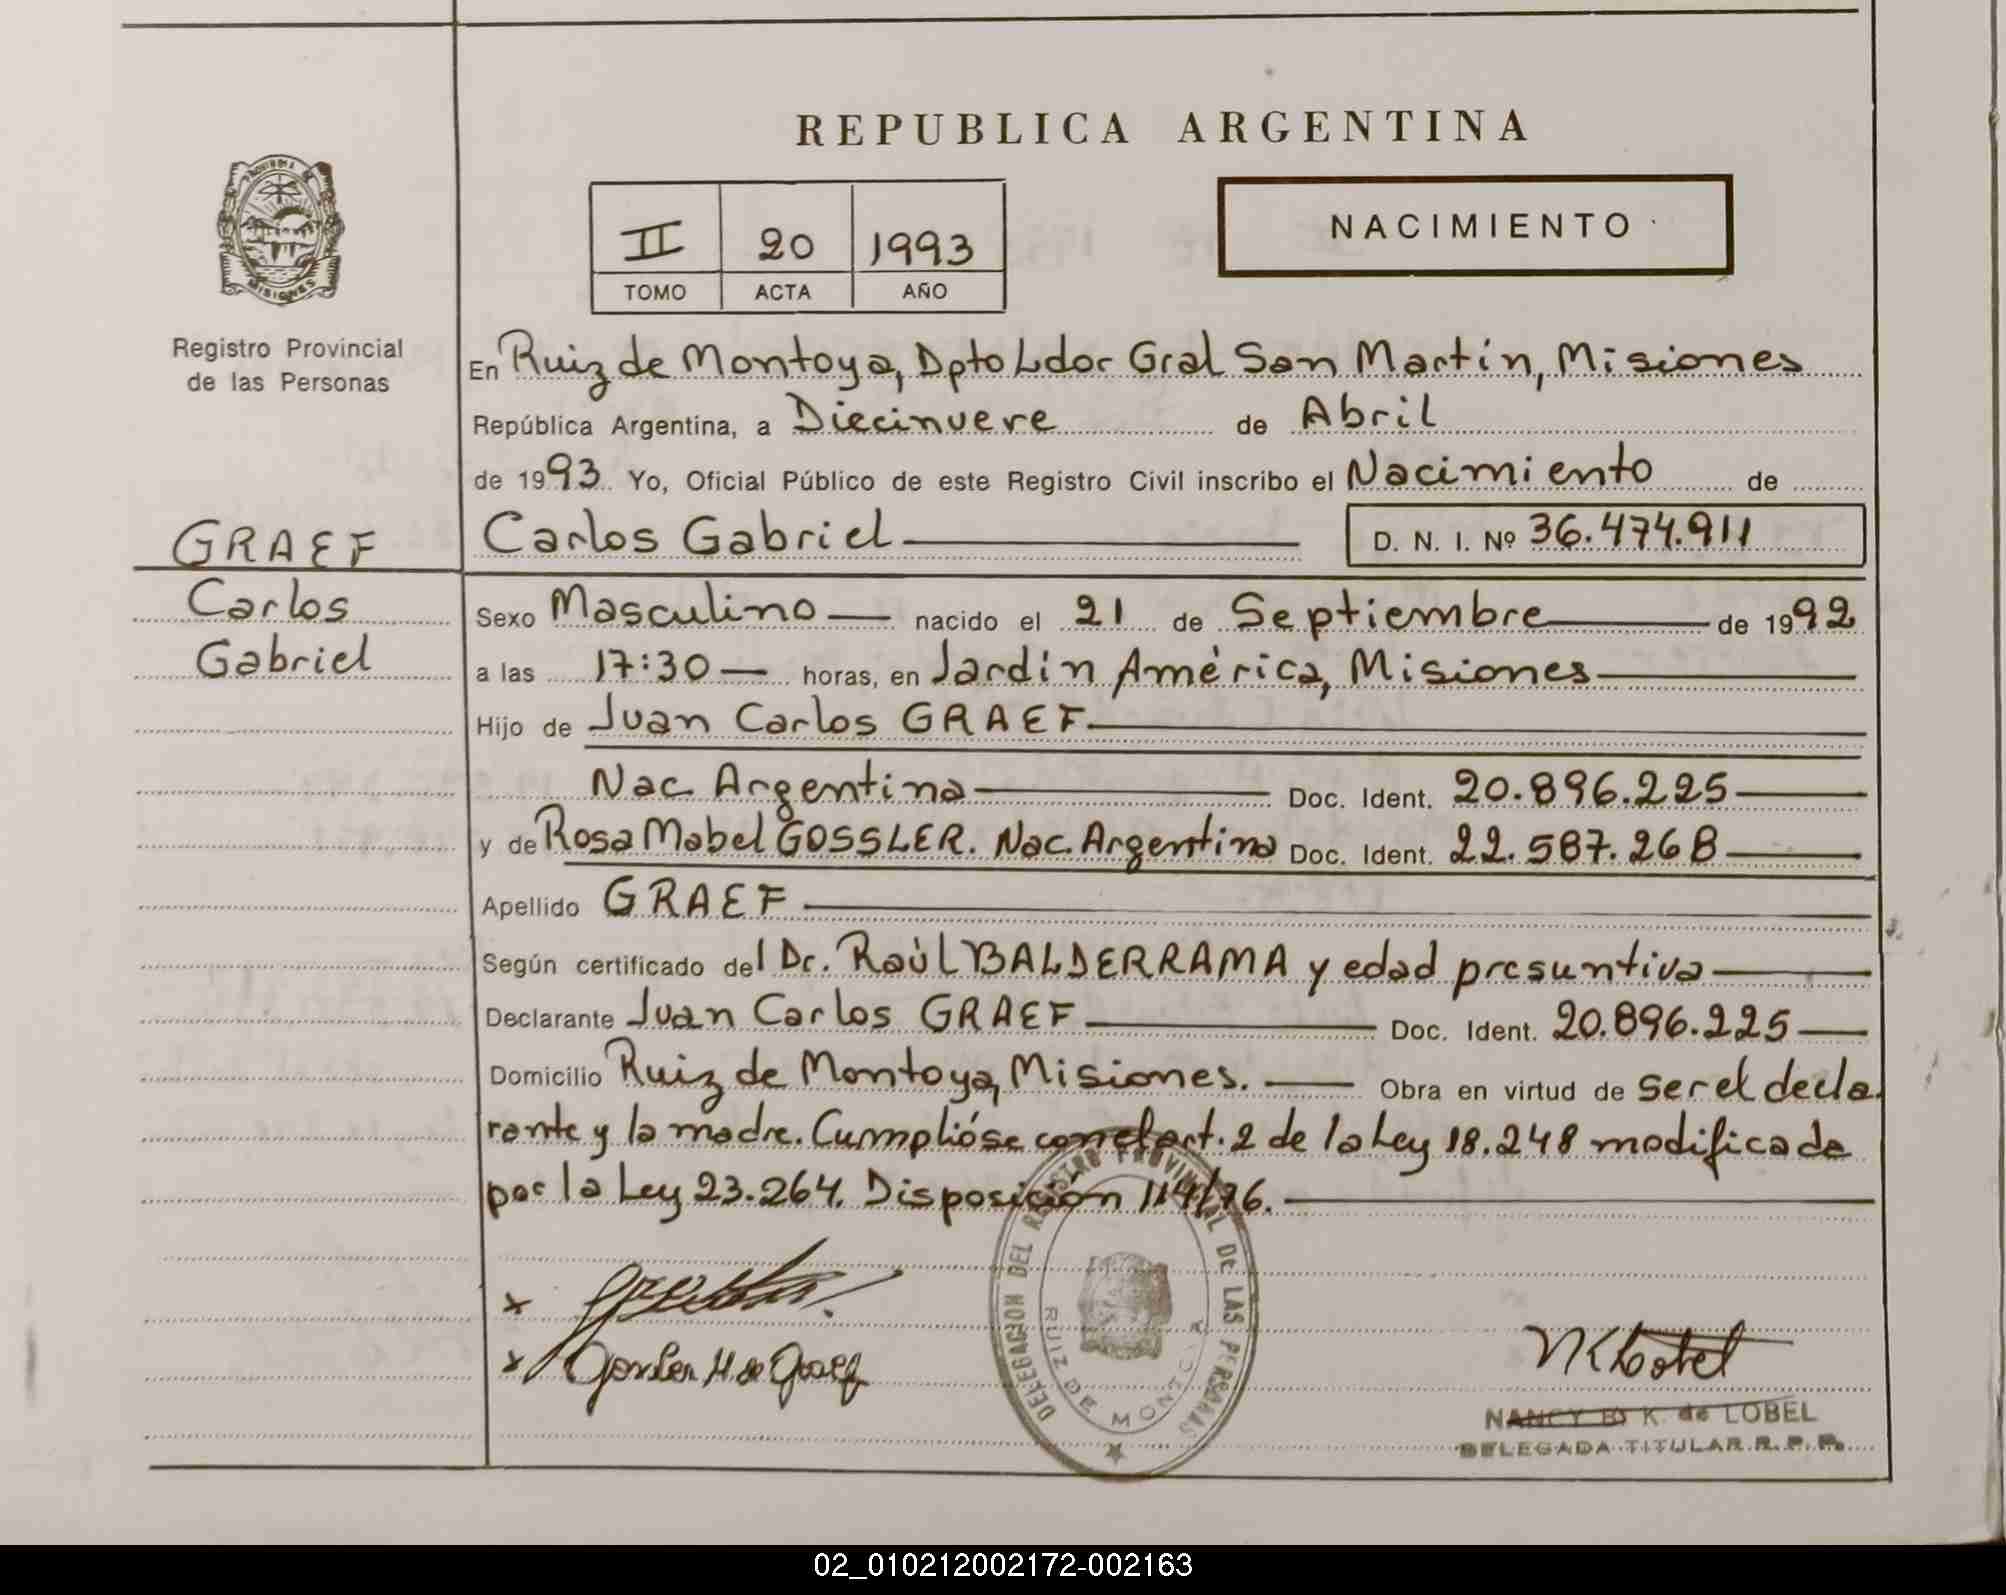 REPUBLICA ARGENTINA
PROVINCIA
MISIONES
Registro Provincial
de las Personas
II 20 1993
TOMO ACTA AÑO
NACIMIENTO
En Ruiz de Montoya, Dpto Ldor Gral San Martín, Misiones
República Argentina, a Diecinueve de Abril
de 1993 Yo, Oficial Público de este Registro Civil inscribo el Nacimiento de
GRAEF
Carlos
Gabriel
Carlos Gabriel D. N. I. Nº 36.474.911
Sexo Masculino nacido el 21 de Septiembre de 1992
a las 17:30 horas, en Jardín América, Misiones
Hijo de Juan Carlos GRAEF
Nac. Argentina Doc. Ident. 20.896.225
y de Rosa Mabel GOSSLER. Nac. Argentina Doc. Ident. 22.587.268
Apellido GRAEF
Según certificado del Dr. Raúl BALDERRAMA y edad presuntiva
Declarante Juan Carlos GRAEF Doc. Ident. 20.896.225
Domicilio Ruiz de Montoya, Misiones. Obra en virtud de ser el decla
rante y la madre. Cumplióse con el art. 2 de la Ley 18.248 modificada
por la Ley 23.264. Disposición 114/76.
DELEGACION DEL REGISTRO PROVINCIAL DE LAS PERSONAS
RUIZ DE
x
x Gossler M. de Graef
NANCY B. K. de LOBEL
DELEGADA TITULAR R. P. P.
02_010212002172-002163